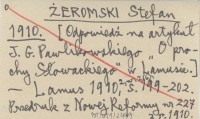 ŻEROMSKI Stefan
1910. [Odpowiedź na artykuł
J. G. Pawlikowskiego "O pro-
chy Słowackiego" w Lamusie.]
— Lamus 1910, s. 199-202.
Przedruk z Nowej Reformy nr 227
1910.